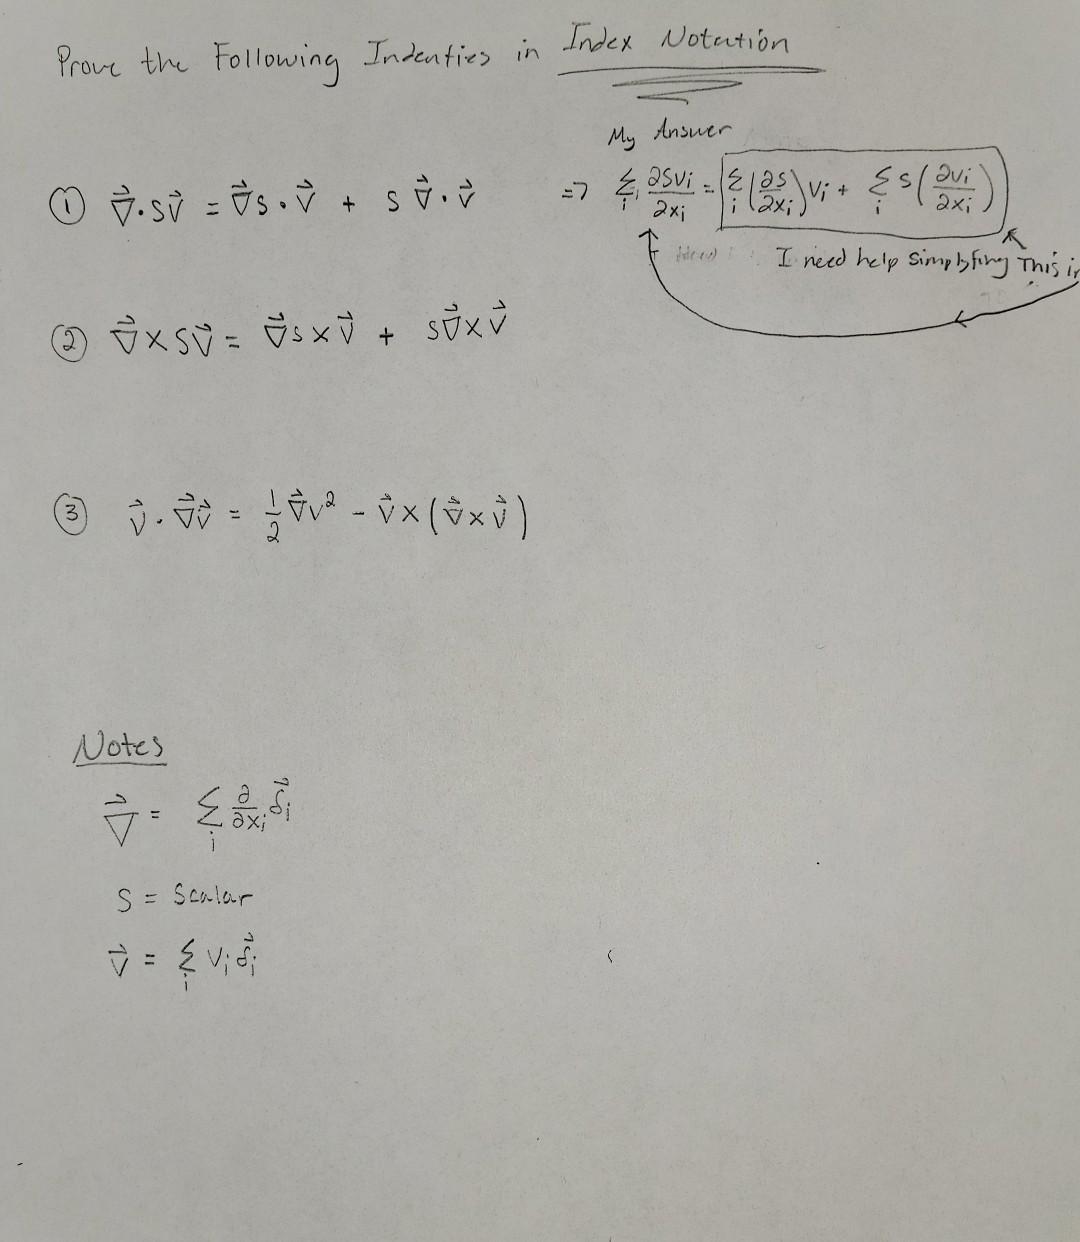 Prove the Following Indenties in Index Notation
My Answer
① ∇⃗·sv⃗ = ∇⃗s·v⃗ + s ∇⃗·v⃗ => Σᵢ ∂svᵢ/∂xᵢ = Σᵢ (∂s/∂xᵢ)vᵢ + Σᵢ s(∂vᵢ/∂xᵢ)
I need help simplyfing This in
② ∇⃗×sv⃗ = ∇⃗s×v⃗ + s∇⃗×v⃗
③ v⃗·∇⃗v⃗ = 1/2 ∇⃗v² - v⃗×(∇⃗×v⃗)
Notes
∇⃗ = Σᵢ ∂/∂xᵢ δ⃗ᵢ
S = Scalar
v⃗ = Σᵢ vᵢδ⃗ᵢ